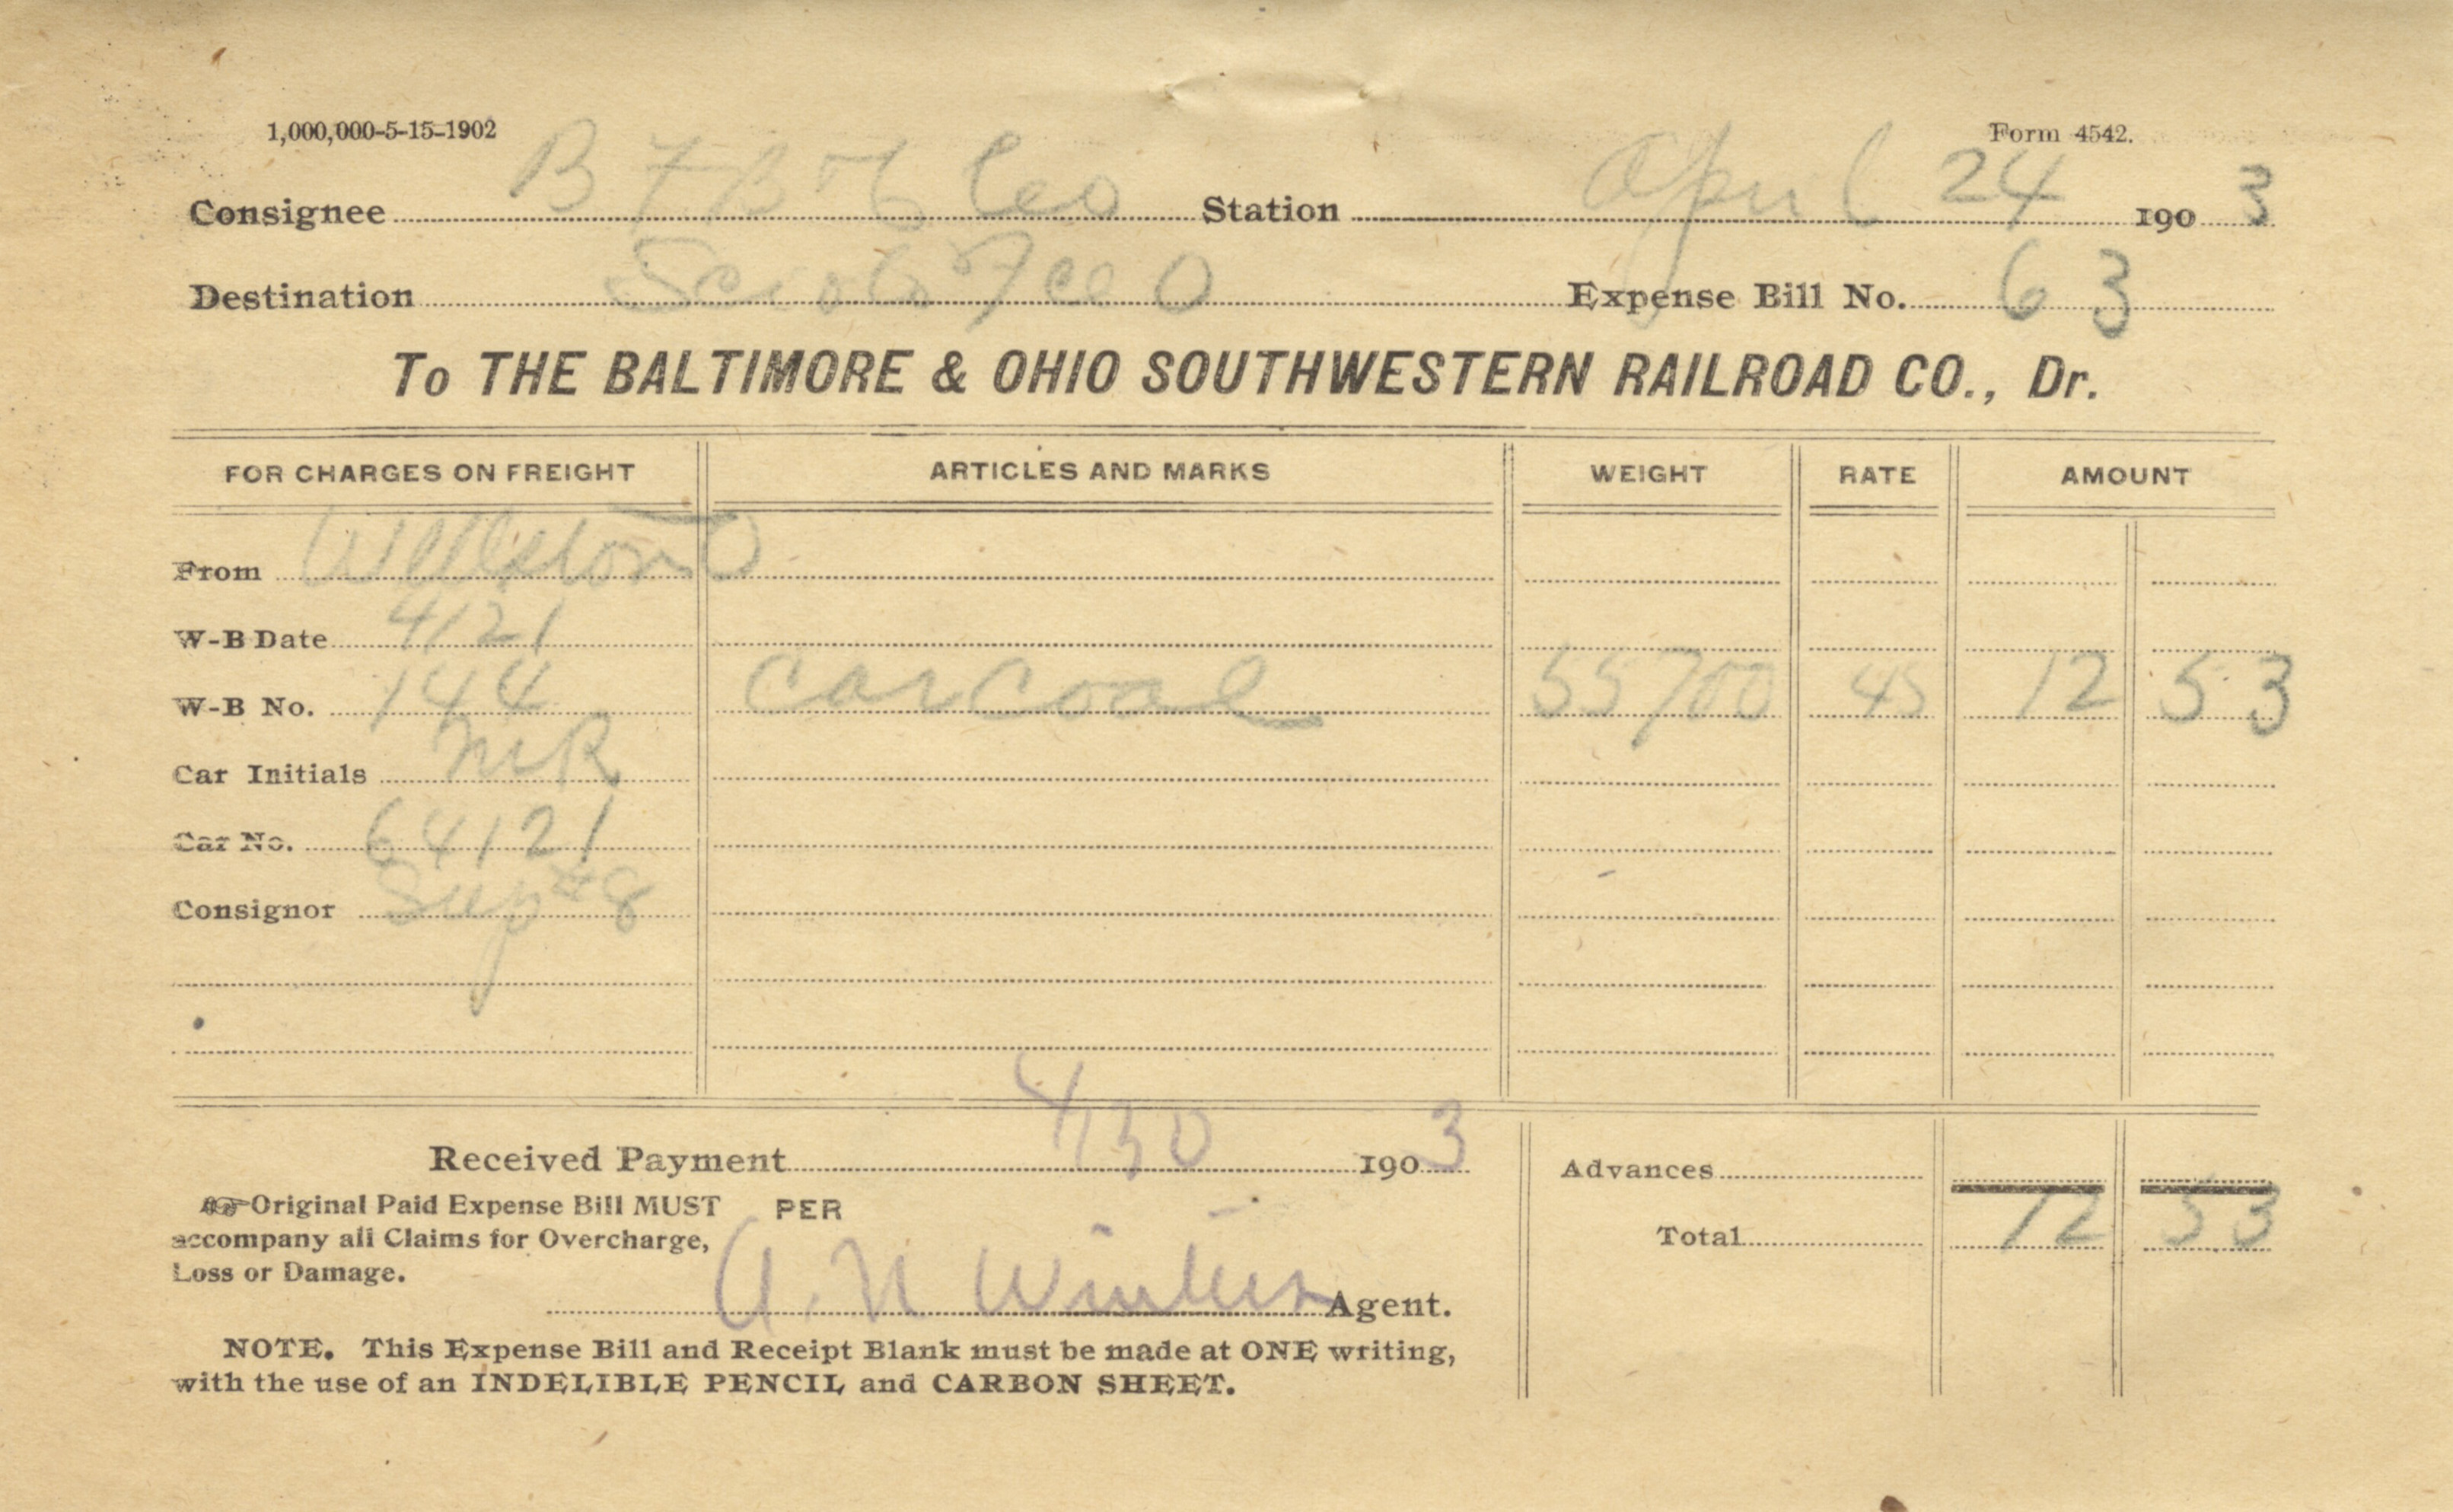 1,000,000-5-15-1902 Form 4542.
Consignee B F B Co Station April 24 1903
Destination Scioto Fce O Expense Bill No. 63
To THE BALTIMORE & OHIO SOUTHWESTERN RAILROAD CO., Dr.
FOR CHARGES ON FREIGHT ARTICLES AND MARKS WEIGHT RATE AMOUNT
From Wellston O
W-B Date 4/21
W-B No. 144 Car Coal 55700 45 12 53
Car Initials
Car No. 64121
Consignor Sup #8
Received Payment 4/30 1903 Advances
☞Original Paid Expense Bill MUST PER
accompany all Claims for Overcharge, Total 12 53
Loss or Damage.
A. N Winters Agent.
NOTE. This Expense Bill and Receipt Blank must be made at ONE writing,
with the use of an INDELIBLE PENCIL and CARBON SHEET.